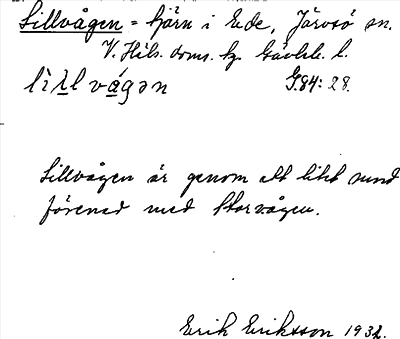 Lillvågen = tjärn i Ede, Järvsö sn.
V. Häls. doms. hg. Gävleb. l.
lìl̲l vá̲gən G.84: 28.
Lillvågen är genom ett litet sund
förenad med Storvågen.
Erik Eriksson 1932.